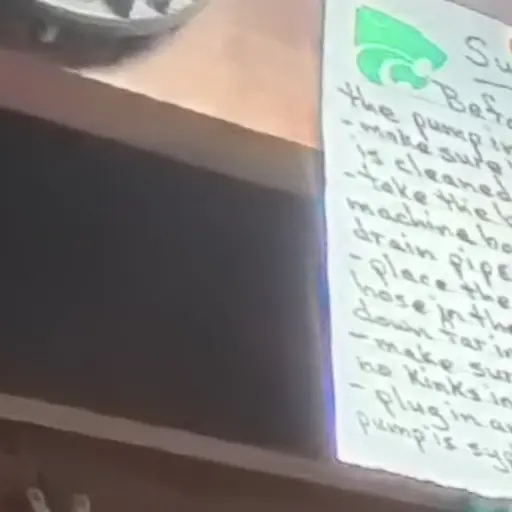 Su
Befo
the pump in
- make sure
is cleaned
- take the b
machine bo
drain pipe
- place the
hose in the
down far in
- make sur
no kinks in
- plug in an
pump is syp